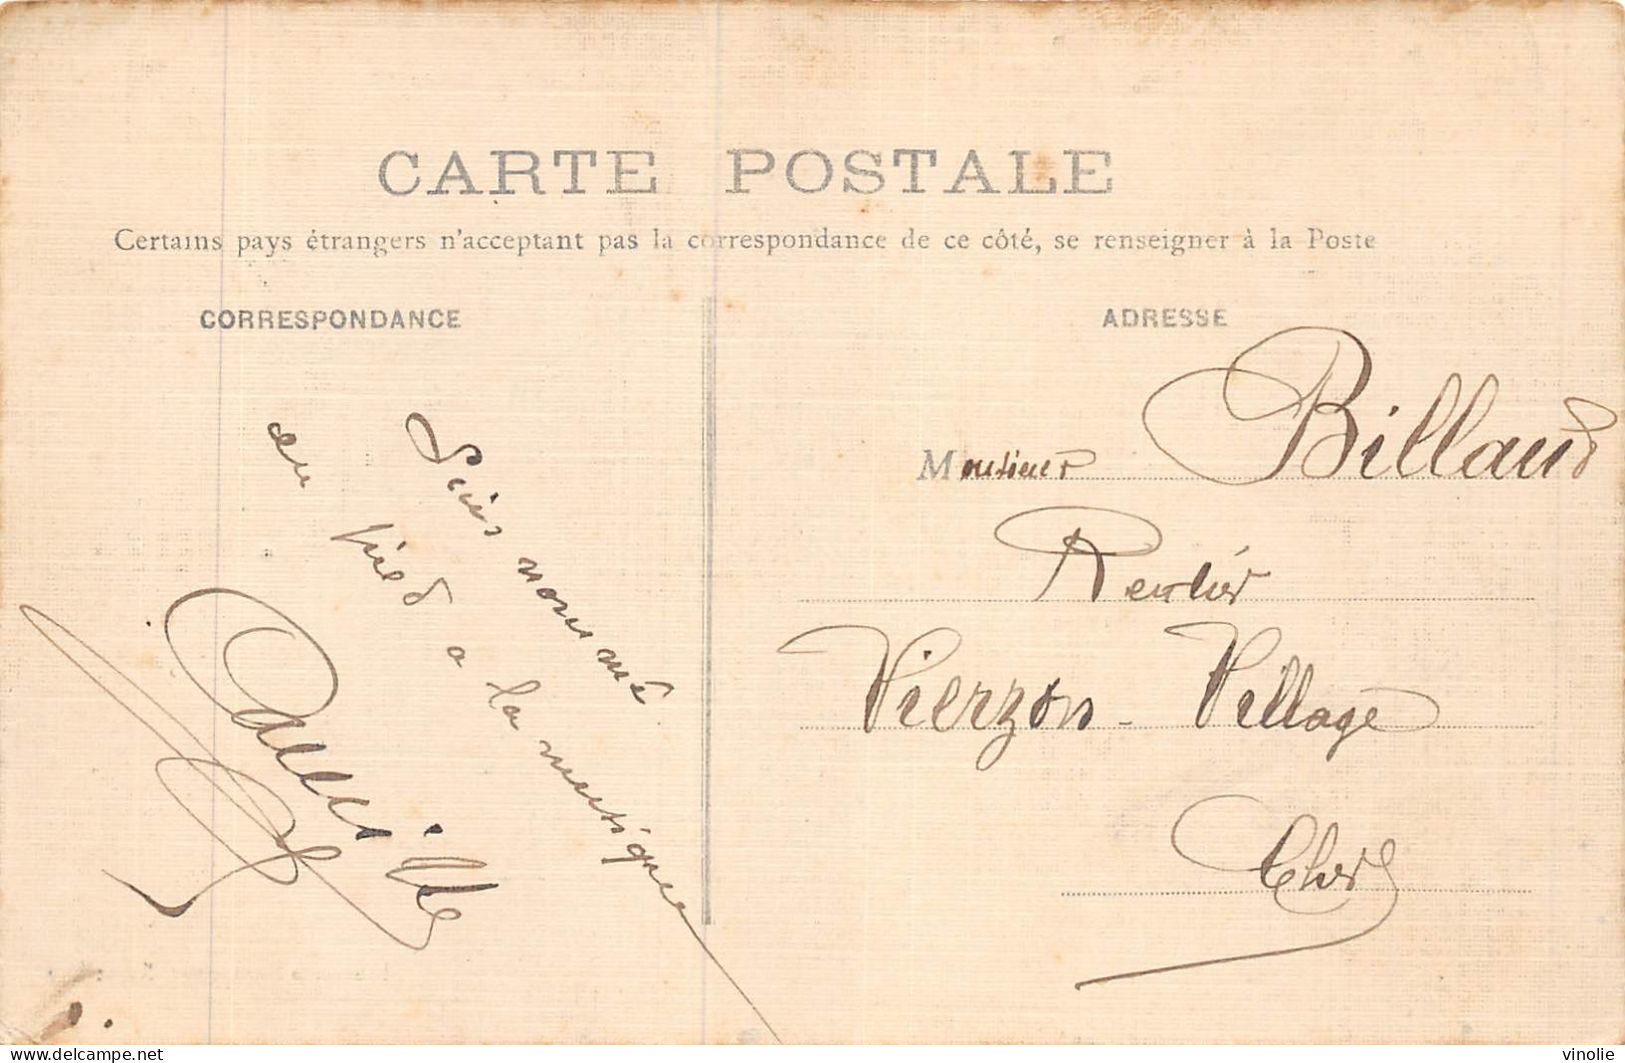 CARTE POSTALE
Certains pays étrangers n'acceptant pas la correspondance de ce côté, se renseigner à la Poste
CORRESPONDANCE
Suis nommé
au pied a la musique
Camille
ADRESSE
Monsieur Billaud
Rentier
Vierzon - Village
Cher
delcampe.net
vinolie